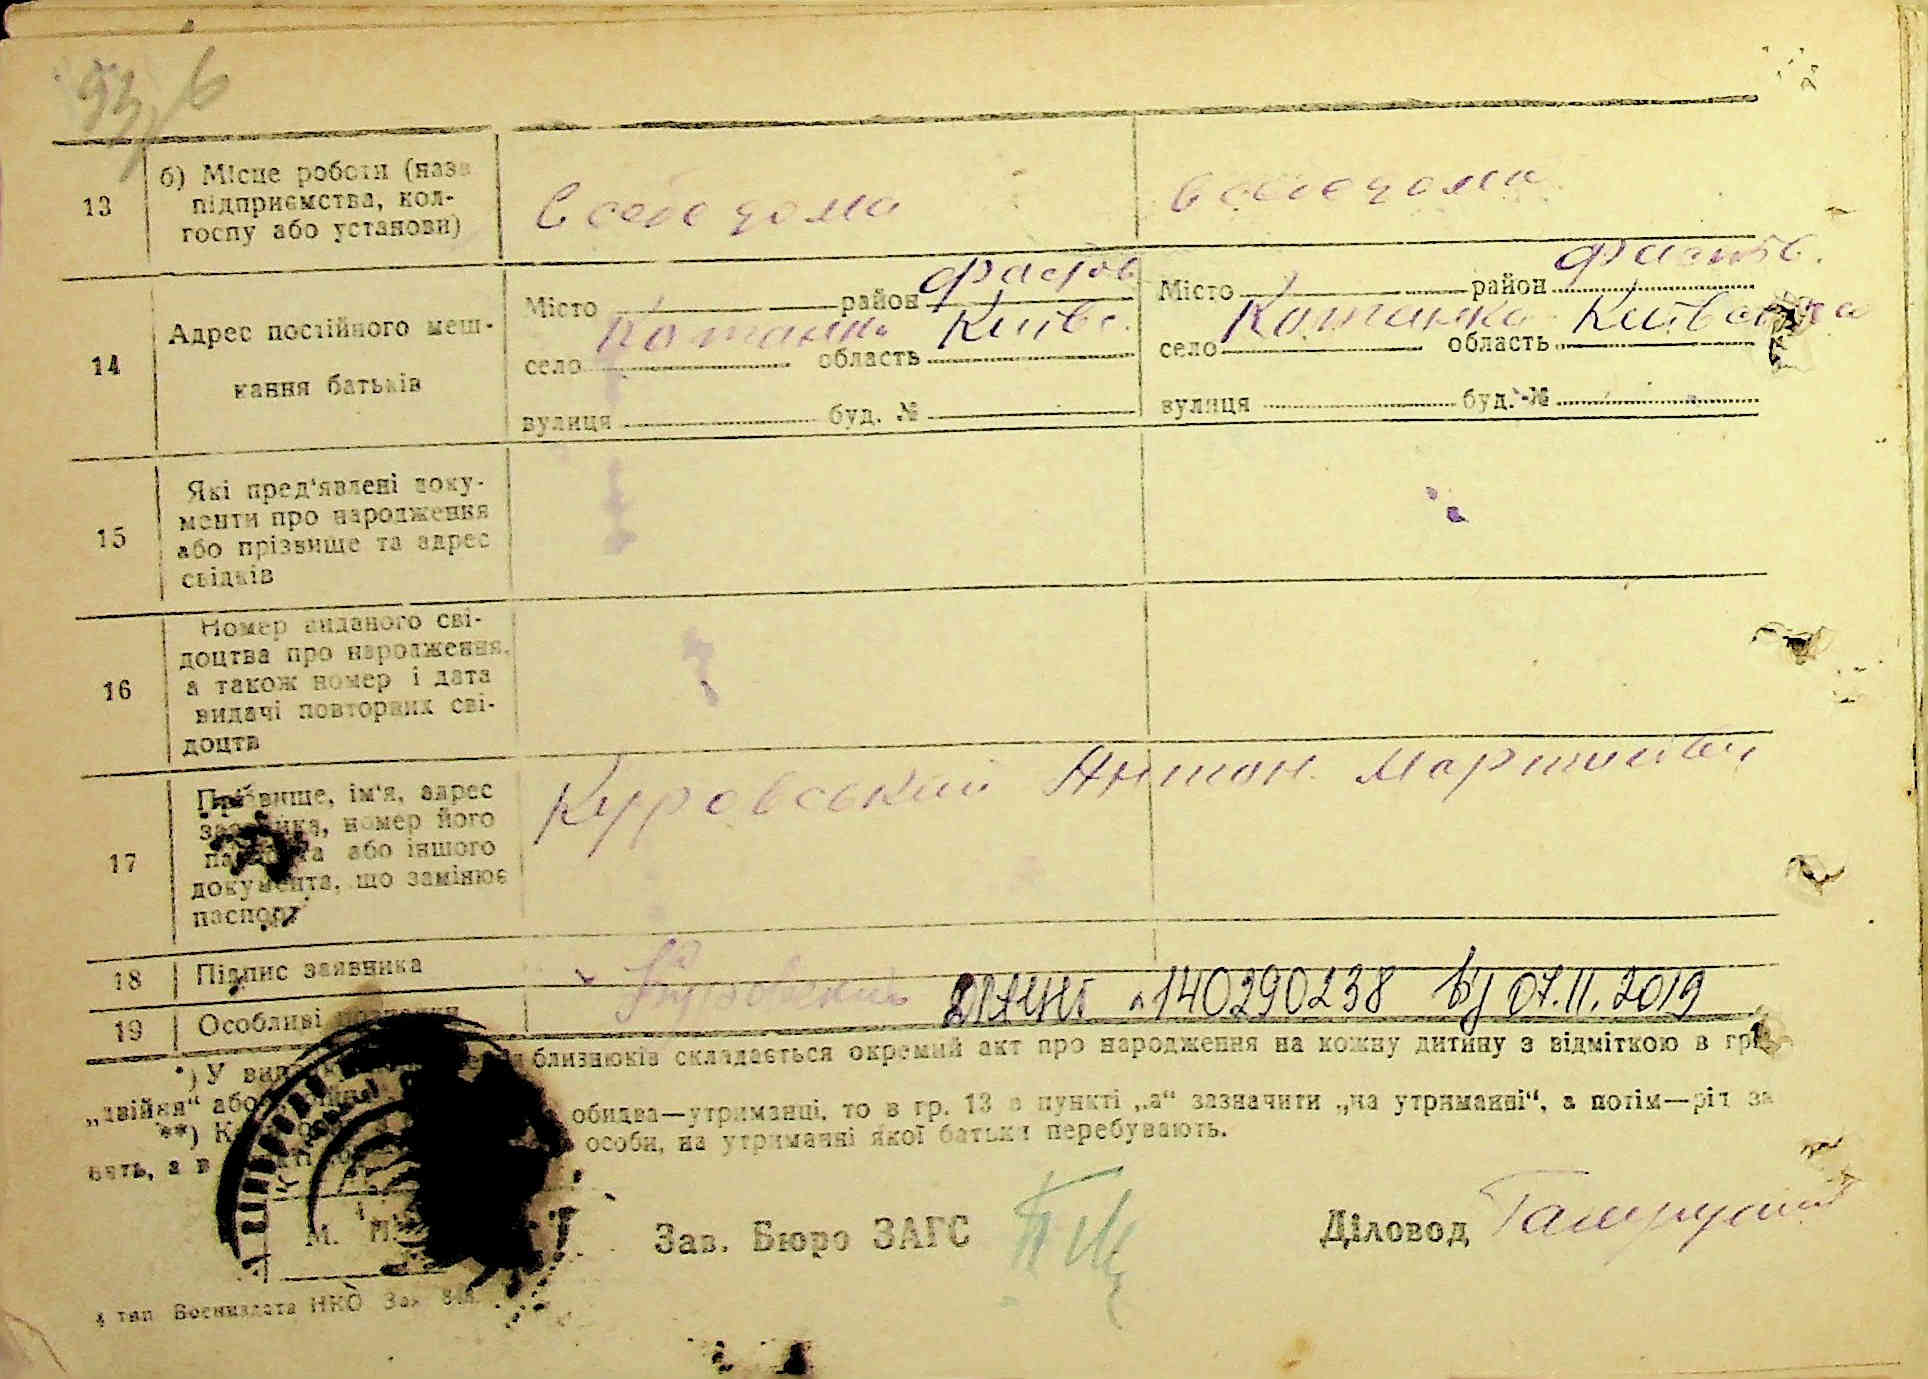 93
6
13
б) Місце роботи (назв
підприємства, кол-
госпу або установи)
в себе дома
в себе дома
14
Адрес постійного меш-
кання батьків
Місто район Фастов
село Потанки область Київс.
вулиця буд. №
Місто район Фастів.
село область Київська
вулиця буд. №
15
Які пред'явлені доку-
менти про народження
або прізвище та адрес
свідків
16
Номер виданого сві-
доцтва про народження,
а також номер і дата
видачі повторних сві-
доцтв
17
Прізвище, ім'я, адрес
заявника, номер його
паспорта або іншого
документа, що замінює
паспорт
Куровський Антон Мартинович
18
Підпис заявника
Куровский
19
Особливі
140290238 від 07.11.2019
*) У близнюків складається окремий акт про народження на кожну дитину з відміткою в гр.
„двійня“ або
**) обидва—утриманці, то в гр. 13 в пункті „а“ зазначити „на утриманні“, а потім—рід за
нять, а в особи, на утриманні якої батьки перебувають.
М. П.
Зав. Бюро ЗАГС
Діловод
тип Воениздата НКО Зак